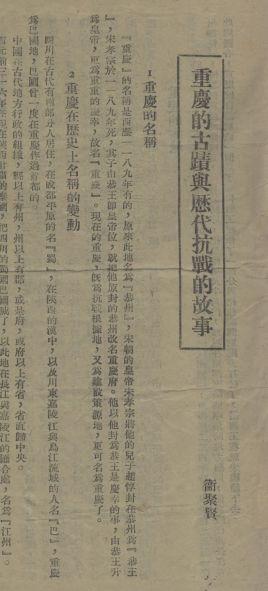 重慶的古蹟與歷代抗戰的故事
衞聚賢
1 重慶的名稱
『重慶』的名稱是西曆一一八九年有的,原來此地名為『恭州』,宋朝的皇帝宋孝宗將他的兒子趙惇封在恭州為『恭王
』,宋孝宗於一一八九年死,其子由恭王即皇帝位,就把他原封的恭州改名重慶府。他以他封為恭王是慶幸的事,由恭王升
為皇帝,更為重重的慶幸,故名『重慶』。現在的重慶,既為抗戰根據地,又為建設策源地,更可名為重慶了。
2 重慶在歷史上名稱的變動
四川在古代有兩部分人居住,在成都平原的名『蜀』,在陝西的漢中,以及川東嘉陵江與烏江流域的人名『巴』,重慶
為巴國地,巴國曾一度在重慶作過首都的。
中國在古代地方行政的組織,縣以上有州,州以上有郡,或是府,或府以上有省,省直歸中央。
西元前三一六年在現在陝西的秦國,把四川的蜀國巴國滅了,以此地在長江與嘉陵江的匯合處,名為『江州』。